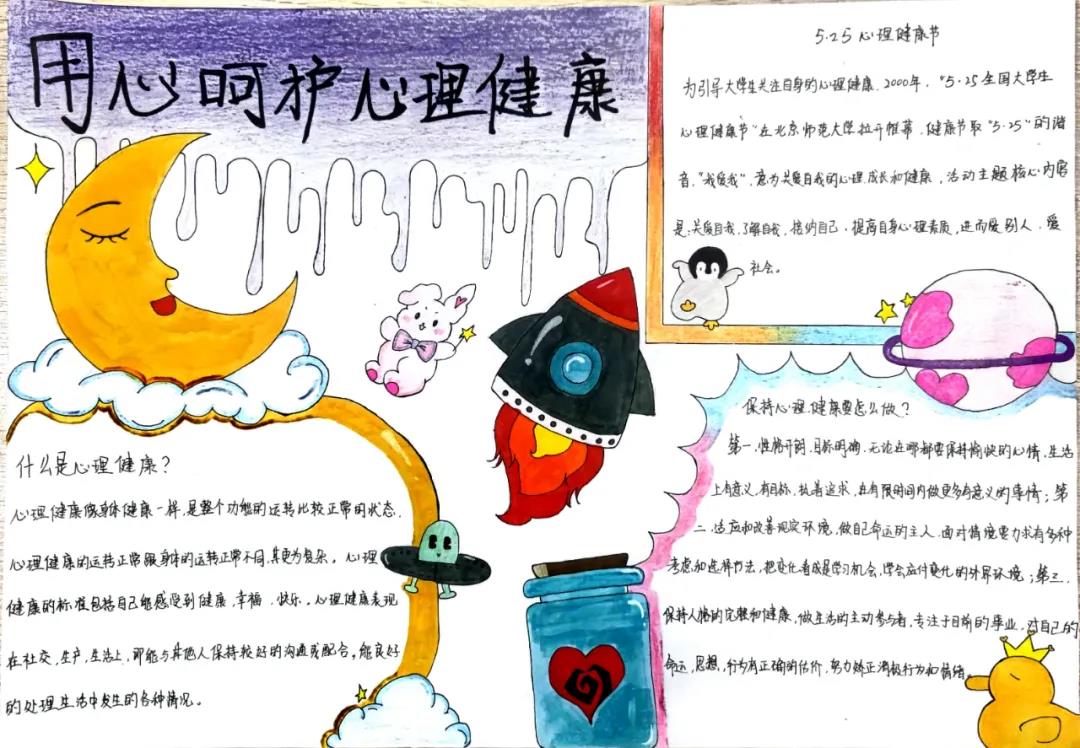 用心呵护心理健康
5.25心理健康节
为引导大学生关注自身的心理健康.2000年,"5·25全国大学生
心理健康节"在北京师范大学拉开帷幕.健康节取"5·25"的谐
音."我爱我",意为关爱自我的心理成长和健康,活动主题核心内容
是:关爱自我,了解自我,接纳自己.提高自身心理素质,进而爱别人.爱
社会。
什么是心理健康?
心理健康像身体健康一样,是整个功能的运转比较正常的状态.
心理健康的运转正常跟身体的运转正常不同,其更为复杂。心理
健康的标准包括自己能感受到健康,幸福.快乐.心理健康表现
在社交,生产,生活上,即能与其他人保持较好的沟通或配合,能良好
的处理生活中发生的各种情况。
保持心理健康要怎么做?
第一.性格开朗.目标明确.无论在哪都要保持愉快的心情,生活
上有意义,有目标,执着追求,在有限时间内做更多有意义的事情;第
二.适应和改善现实环境,做自己命运的主人.面对情境要力求有多种
考虑和选择方法,把变化看成是学习机会,学会应付变化的外界环境;第三.
保持人格的完整和健康,做生活的主动参与者,专注于目前的事业,对自己的
命运,思想,行为有正确的估价.努力矫正消极行为和情绪。